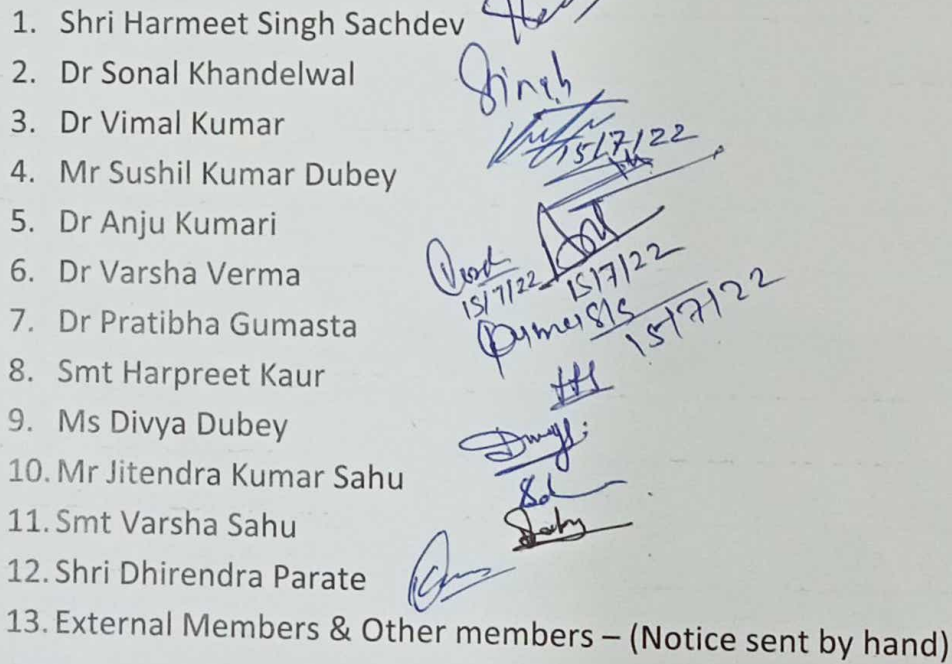 1. Shri Harmeet Singh Sachdev
2. Dr Sonal Khandelwal Singh
3. Dr Vimal Kumar 15/7/22
4. Mr Sushil Kumar Dubey
5. Dr Anju Kumari
6. Dr Varsha Verma 15/7/22 15/7/22
7. Dr Pratibha Gumasta 15/7/22
8. Smt Harpreet Kaur
9. Ms Divya Dubey
10. Mr Jitendra Kumar Sahu
11. Smt Varsha Sahu
12. Shri Dhirendra Parate
13. External Members & Other members – (Notice sent by hand)